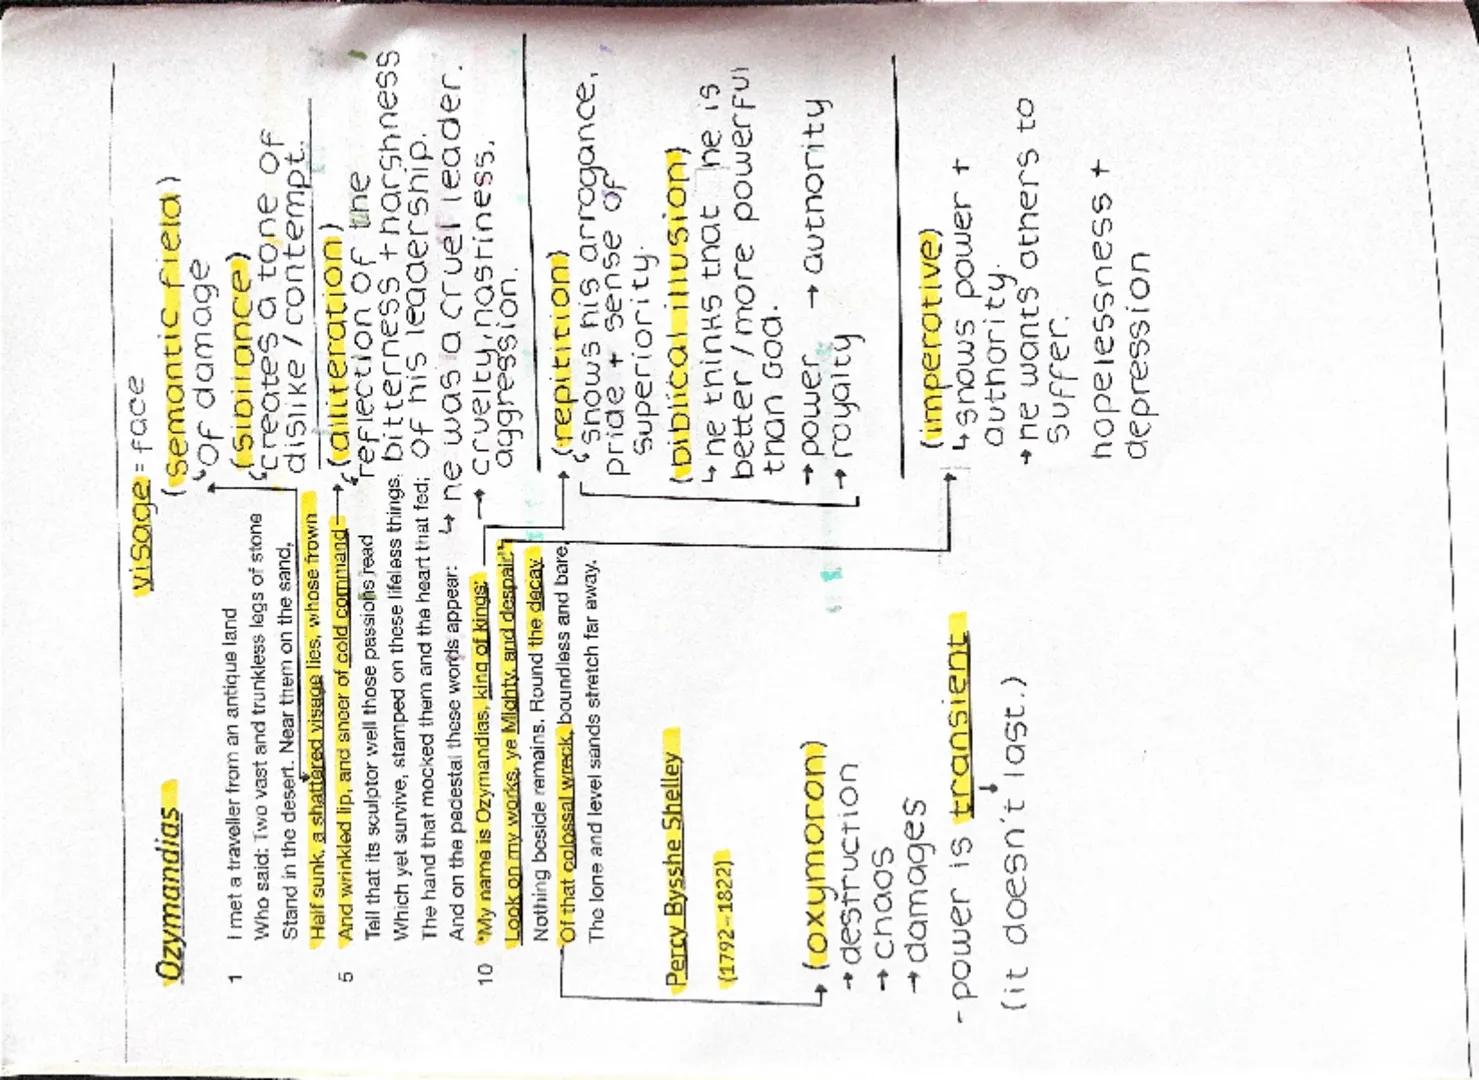 visage = face
Ozymandias
1 I met a traveller from an antique land
Who said: Two vast and trunkless legs of stone
Stand in the desert. Near them on the sand,
Half sunk, a shattered visage lies, whose frown
5 And wrinkled lip, and sneer of cold command
Tell that its sculptor well those passions read
Which yet survive, stamped on these lifeless things,
The hand that mocked them and the heart that fed;
And on the pedestal these words appear:
10 "My name is Ozymandias, king of kings:
Look on my works, ye Mighty, and despair!"
Nothing beside remains. Round the decay
Of that colossal wreck, boundless and bare,
The lone and level sands stretch far away.
Percy Bysshe Shelley
(1792–1822)
(oxymoron)
→ destruction
→ chaos
→ damages
- power is transient
(it doesn't last.)
(semantic field)
↳ of damage
(sibilance)
↳ creates a tone of
dislike / contempt.
(alliteration)
↳ reflection of the
bitterness + harshness
of his leadership.
↳ he was a cruel leader.
→ cruelty, nastiness,
aggression.
(repitition)
↳ shows his arrogance,
pride + sense of
superiority.
(biblical illusion)
↳ he thinks that he is
better / more powerful
than God.
→ power → authority
→ royalty
(imperative)
↳ shows power +
authority.
→ he wants others to
suffer.
hopelessness +
depression